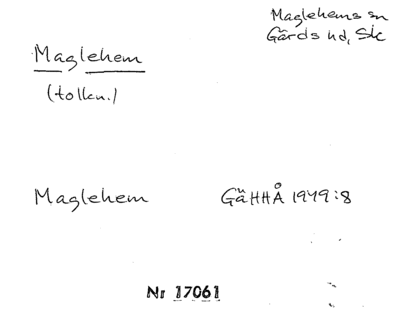 Maglehems sn
Gärds hd, Sk
Maglehem
(tolkn.)
Maglehem GäHHÅ 1949:8
Nr 17061